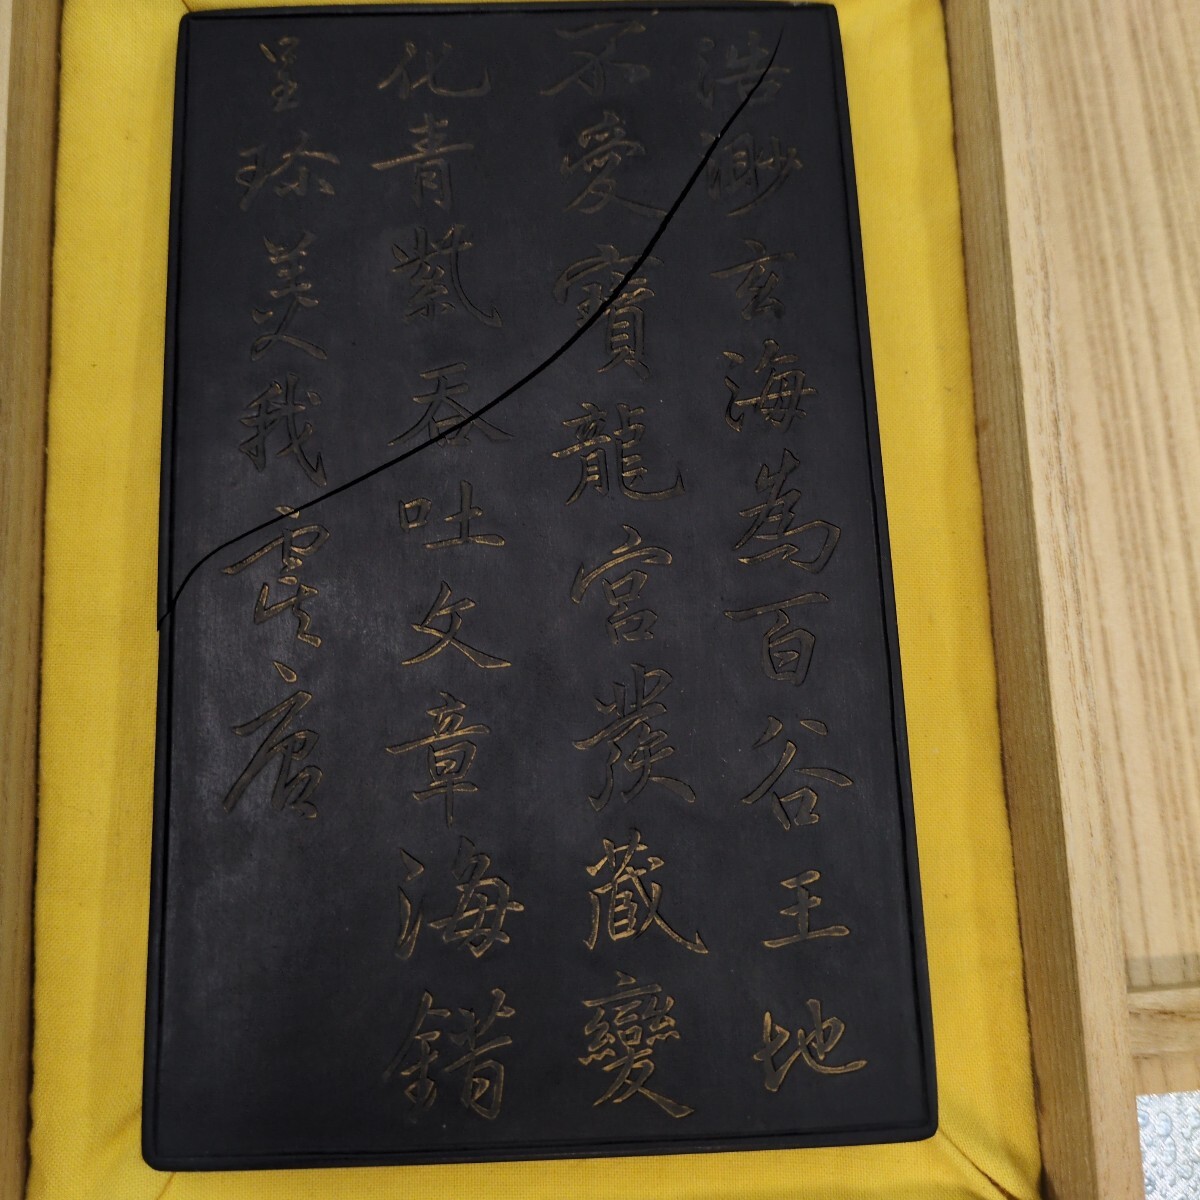 浩渺玄海為百谷王地
不愛寶龍宮發藏變
化青紫吞吐文章海錯
呈珎美我虛房